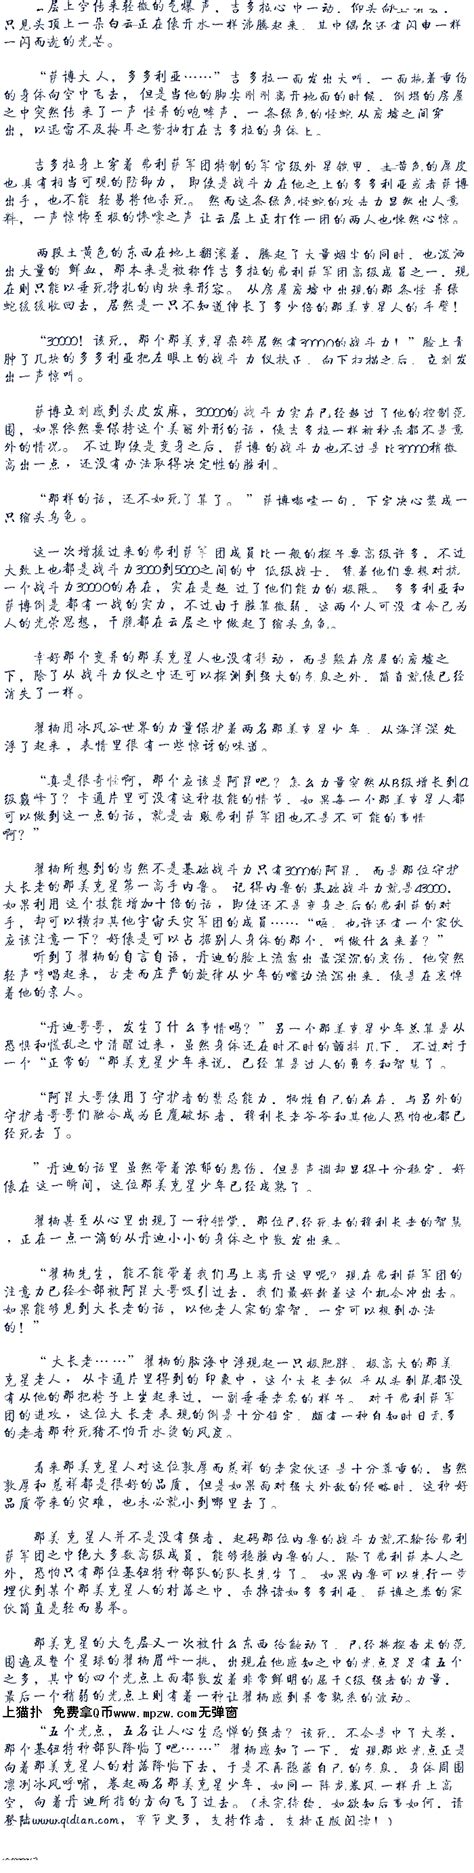 只见头顶上一朵白云正在像开水一样沸腾起来，其中偶尔还有闪电一样
一闪而逝的光芒。
“萨博大人，多多利亚……”吉多拉一面发出大叫，一面拖着重伤
的身体向空中飞去，但是当他的脚尖刚刚离开地面的时候，倒塌的房屋
之中突然传来了一声怪异的咆哮声，一条绿色的怪蛇从废墟之间穿
出，以迅雷不及掩耳之势抽打在吉多拉的身体上。
吉多拉身上穿着弗利萨军团特制的军官级外星铠甲，土黄色的厚皮
也具有相当可观的防御力，即使是战斗力在他之上的多多利亚或者萨博
出手，也不能轻易将他杀死。然而这条绿色怪蛇的攻击力显然出人意
料，一声惊怖至极的惨嚎之声让云层上正打作一团的两人也悚然心惊。
两段土黄色的东西在地上翻滚着，腾起了大量烟尘的同时，也泼洒
出大量的鲜血，那本来是被称作吉多拉的弗利萨军团高级成员之一，现
在则只能以垂死挣扎的肉块来形容。从房屋废墟中出现的那条怪异绿
蛇缓缓收回去，居然是一只不知道伸长了多少倍的那美克星人的手臂！
“30000！该死，那个那美克星杂碎居然有30000的战斗力！”脸上青
肿了几块的多多利亚把左眼上的战斗力仪扶正，向下扫描之后，立刻发
出一声惊叫。
萨博立刻感到头皮发麻，30000的战斗力实在已经超过了他的控制范
围，如果依然要保持这个美丽外形的话，像吉多拉一样被秒杀都不是意
外的情况。不过即使是变身之后，萨博的战斗力也不过是比30000稍微
高出一点，还没有办法取得决定性的胜利。
“那样的话，还不如死了算了。”萨博嘟哝一句，下定决心装成一
只缩头乌龟。
这一次增援过来的弗利萨军团成员比一般的探子要高级许多，不过
大致上也都是战斗力3000到5000之间的中低级战士，凭着他们要想对抗
一个战斗力30000的存在，实在是超过了他们能力的极限。多多利亚和
萨博倒是都有一战的实力，不过由于胜算微弱，这两个人可没有舍己为
人的光荣思想，干脆都在云层之中做起了缩头乌龟。
幸好那个变异的那美克星人也没有移动，而是躲在房屋的废墟之
下，除了从战斗力仪之中还可以探测到强大的气息之外，简直就像已经
消失了一样。
翟楠用冰风谷世界的力量保护着两名那美克星少年，从海洋深处
浮了起来，表情里很有一些惊讶的味道。
“真是很奇怪啊，那个应该是阿昆吧？怎么力量突然从B级增长到A
级巅峰了？卡通片里可没有这种技能的情节，如果每一个那美克星人都
可以做到这一点的话，就是击败弗利萨军团也不是不可能的事情
啊？”
翟楠所想到的当然不是基础战斗力只有3000的阿昆，而是那位守护
大长老的那美克星第一高手内鲁。记得内鲁的基础战斗力就是43000，
如果利用这个技能增加十倍的话，即使还不是变身之后的弗利萨的对
手，却可以横扫其他宇宙天灾军团的成员……“嗯，也许还有一个家伙
应该注意一下？好像是可以占据别人身体的那个，叫做什么来着？”
听到了翟楠的自言自语，丹迪的脸上流露出最深沉的哀伤，他突然
轻声哼唱起来，古老而庄严的旋律从少年的嘴边流泻出来，像是在哀悼
着他的亲人。
“丹迪哥哥，发生了什么事情吗？”另一个那美克星少年总算是从
恐惧和慌乱之中清醒过来，虽然身体还在时不时的颤抖几下，不过对于
一个“正常的“那美克星少年来说，已经算是过人的勇气和智慧了。
“阿昆大哥使用了守护者的禁忌能力，牺牲自己的存在，与另外的
守护者哥哥们融合成为巨魔破坏者，穆利长老爷爷和其他人恐怕也都已
经死去了。
”丹迪的话里虽然带着浓郁的悲伤，但是声调却显得十分稳定，好
像在这一瞬间，这位那美克星少年已经成熟了。
翟楠甚至从心里出现了一种错觉，那位已经死去的穆利长老的智慧
，正在一点一滴的从丹迪小小的身体之中散发出来。
“翟楠先生，能不能带着我们马上离开这里呢？现在弗利萨军团的
注意力已经全部被阿昆大哥吸引过去，我们最好趁着这个机会冲出去。
如果能够见到大长老的话，以他老人家的睿智，一定可以想到办法
的！”
“大长老……”翟楠的脑海中浮现起一只极肥胖、极高大的那美
克星老人，从卡通片里得到的印象中，这个大长老似乎从头到尾都没
有从他的那把椅子上坐起来过，一副垂垂老矣的样子。对于弗利萨军
团的进攻，这位大长老表现的倒是十分镇定，颇有一种自知时日无多
的老者那种死猪不怕开水烫的风度。
看来那美克星人对这位敦厚而慈祥的老家伙还是十分尊重的，当然
敦厚和慈祥都是很好的品质，但是如果面对强大外敌的侵略时，这种好
品质带来的灾难，也未必就小到哪里去了。
那美克星人并不是没有强者，起码那位内鲁的战斗力就不输给弗利
萨军团之中绝大多数高级成员，能够稳胜内鲁的人，除了弗利萨本人之
外，恐怕只有那位基纽特种部队的队长先生了。如果内鲁可以先行一步
埋伏到某个那美克星人的村落之中，杀掉诸如多多利亚、萨博之类的家
伙简直是轻而易举。
那美克星的大气层又一次被什么东西给触动了，已经将探查术的范
围遍及整个星球的翟楠眉峰一挑，出现在他感知之中的光点足足有五个
之多，其中的四个光点上面都散发着非常鲜明的属于C级强者的力量，
最后一个稍弱的光点上则有着一种让翟楠感到异常熟悉的波动。
上猫扑 免费拿Q币www.mpzw.com无弹窗
“五个光点，五名让人心生忌惮的强者？该死，不会是中了大奖，
那个基纽特种部队降临了吧……”翟楠感知了一下，发现那些光点正是
向着那美克星人的村落降临下去，于是不再隐藏自己的气息，身体周围
凛冽冰风呼啸，卷起两名那美克星少年，如同一阵龙卷风一样升上高
空，向着丹迪所指的方向飞了过去。（未完待续，如欲知后事如何，请
登陆www.qidian.com，章节更多，支持作者，支持正版阅读！）